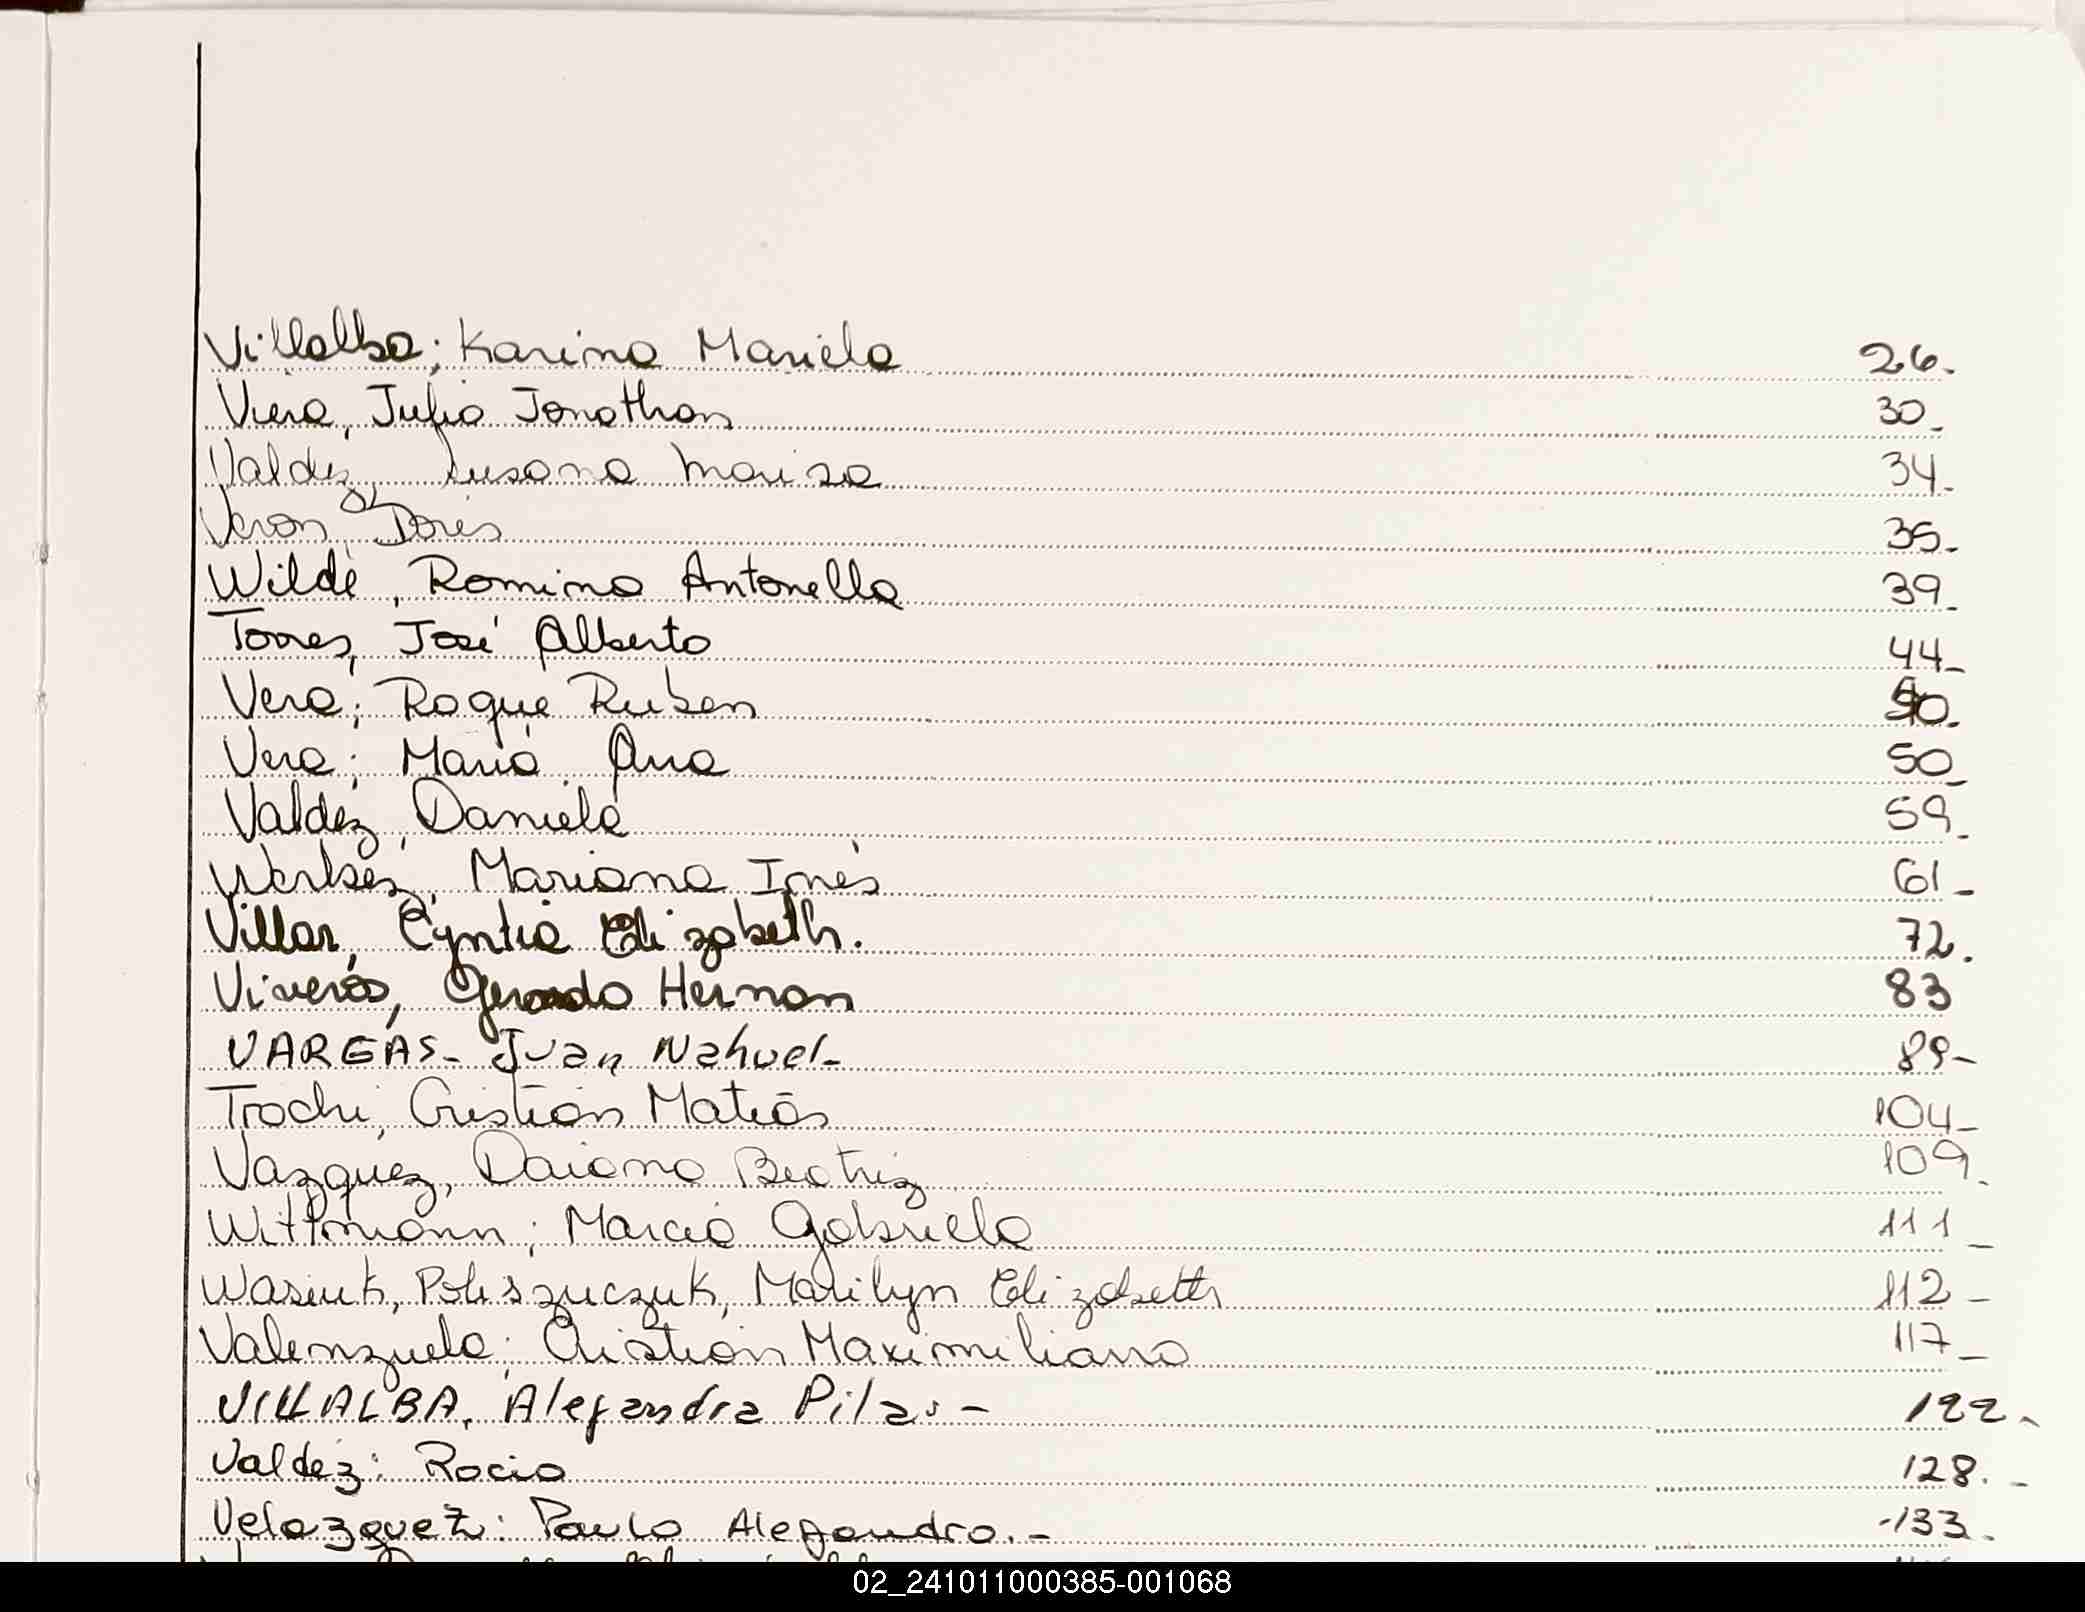 Villalba; Karina Mariela 26.
Viera, Julio Jonathan 30_
Valdez, Susana Marisa 34.
Veron, Doris 35.
Wilde, Romina Antonella 39_
Torres, José Alberto 44_
Vera; Roque Ruben
Vera; María Ana 50_
Valdéz, Daniela 59_
Mariana Inés 61_
Villar, Cyntia Elizabeth. 72.
Viveros, Gerardo Hernan 83
VARGAS_ Juan Nahuel_ 89_
Trochi, Cristian Matias 104_
Vazquez, Daiana Beatriz 109.
Wittmann; Marcia Gabriela 111_
Wasiuk, Poliszuczuk, Marilyn Elizabeth 112_
Valenzuela; Cristian Maximiliano 117_
VILLALBA, Alejandra Pilar- 122.
Valdéz: Rocio 128._
Velazquez: Paulo Alejandro._ 133.
02_241011000385-001068